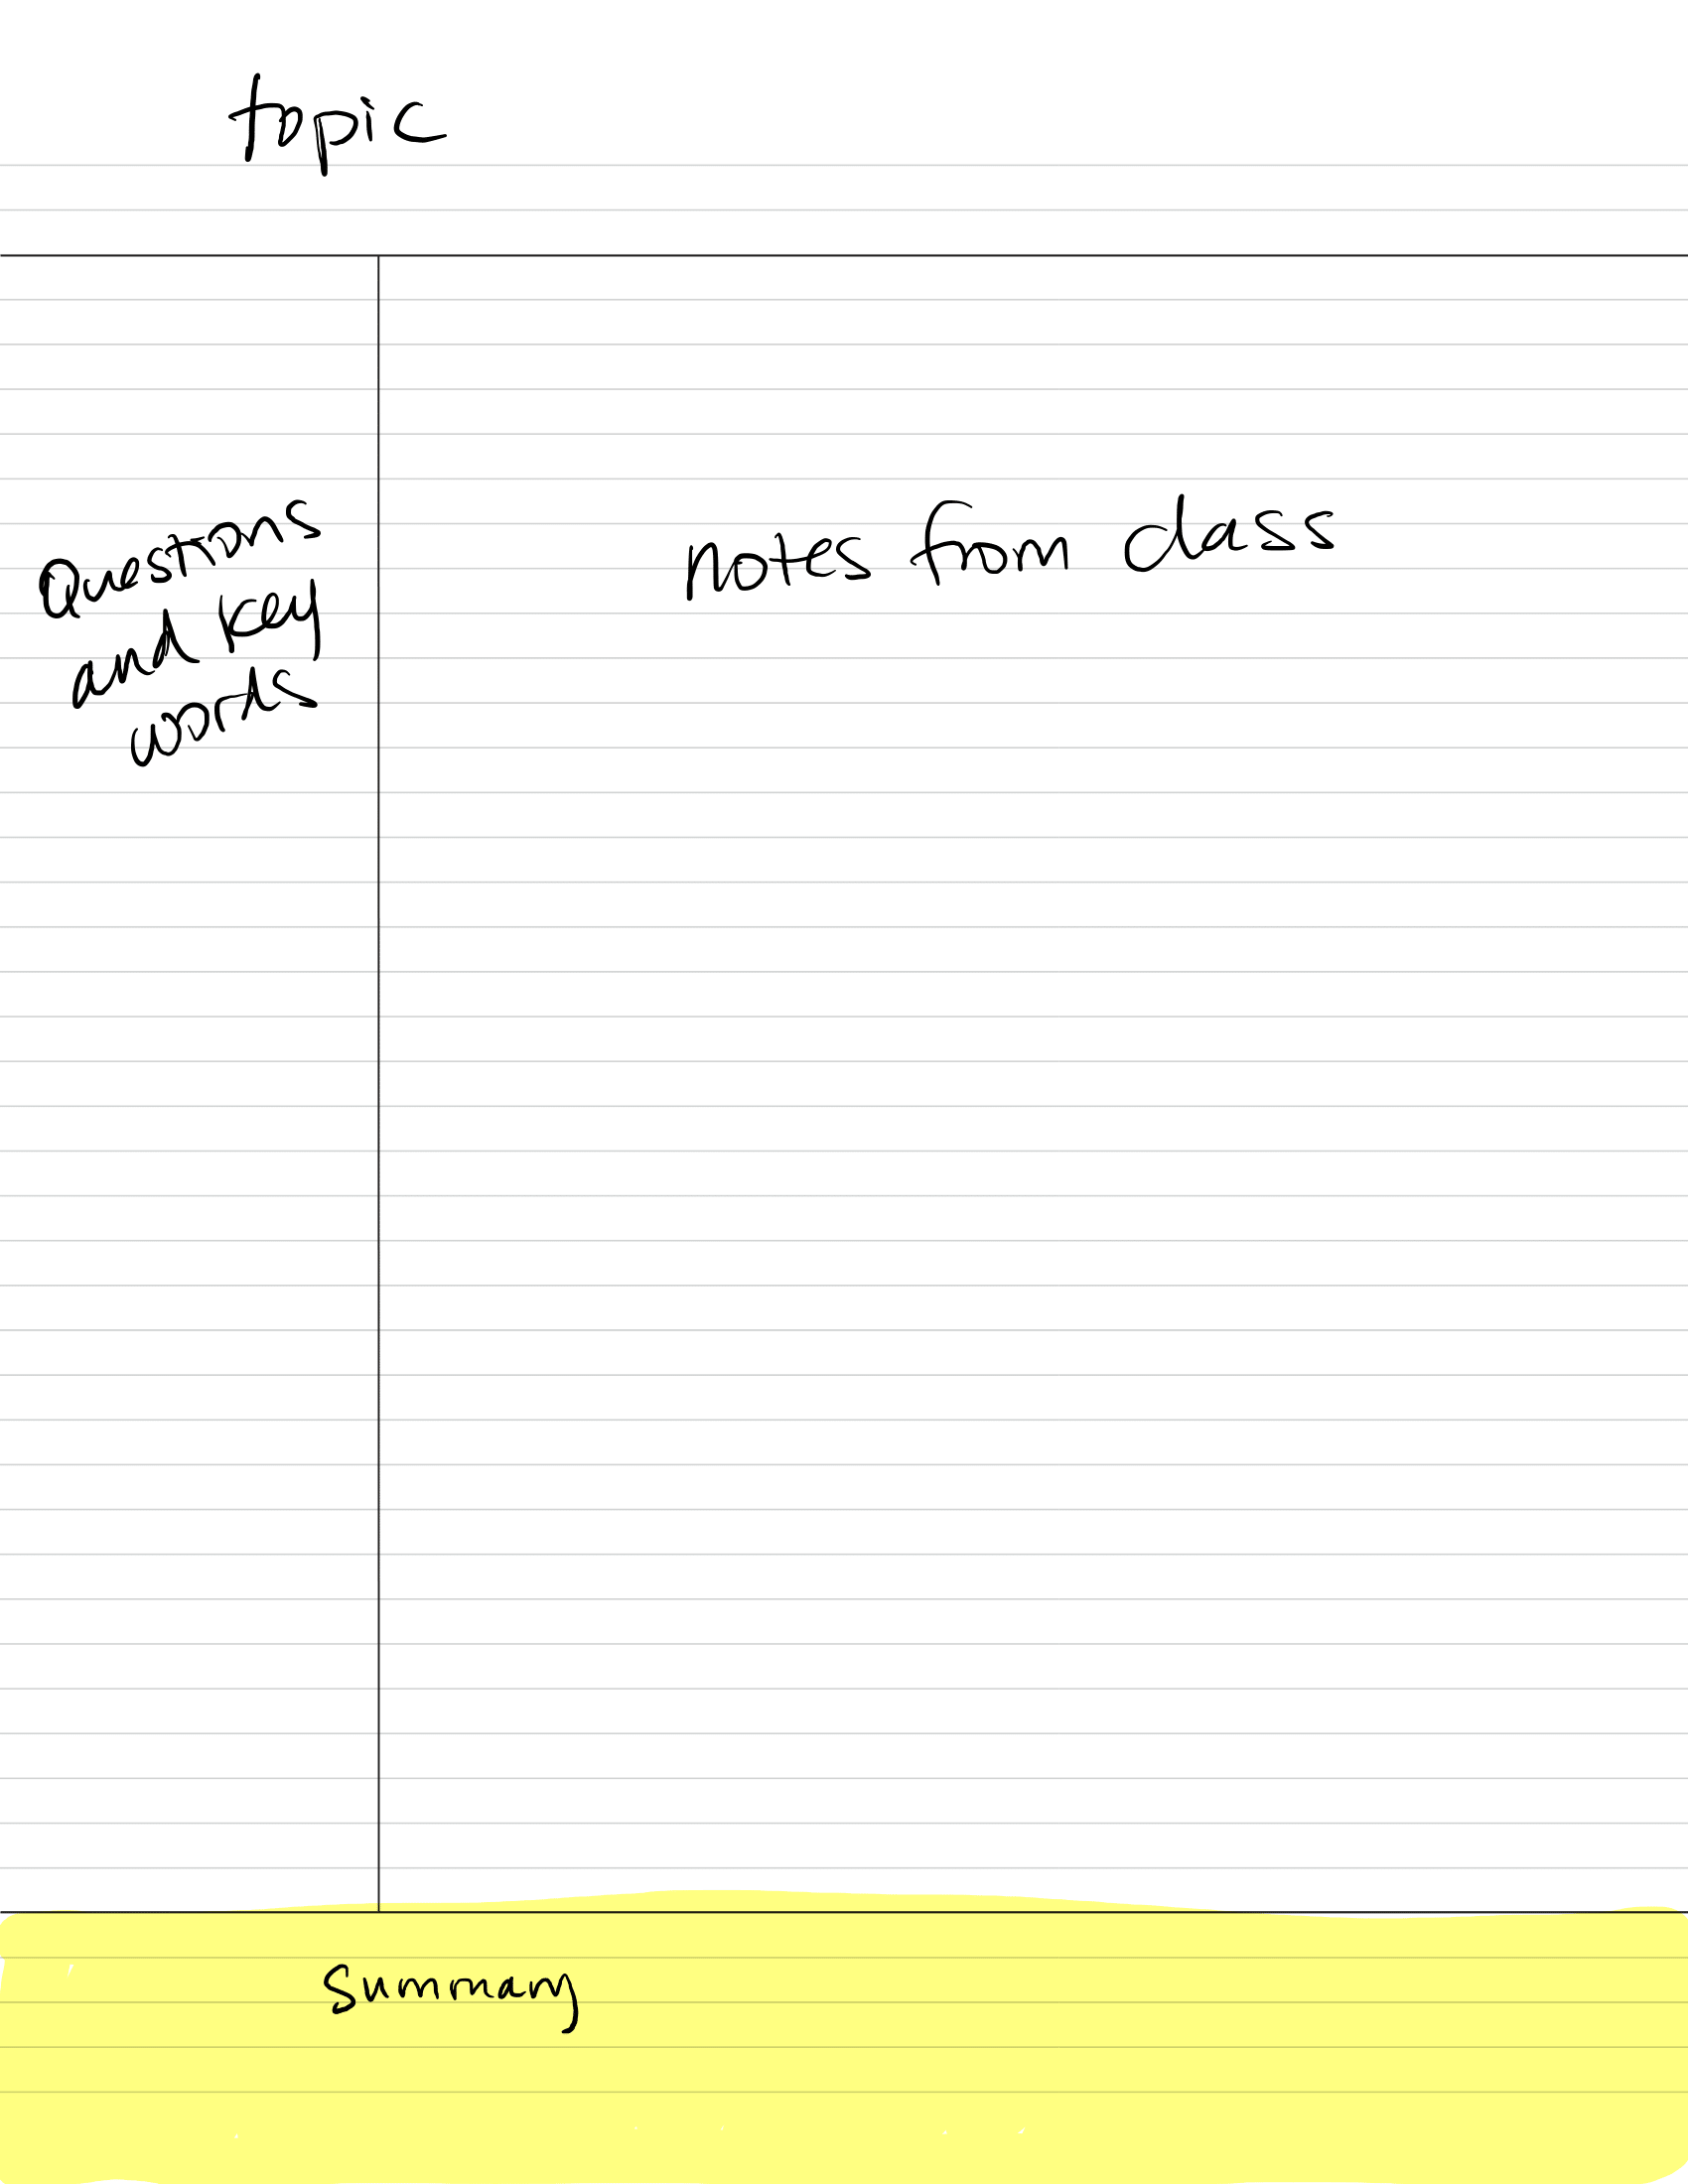 topic
Questions
and key
words
notes from class
Summary